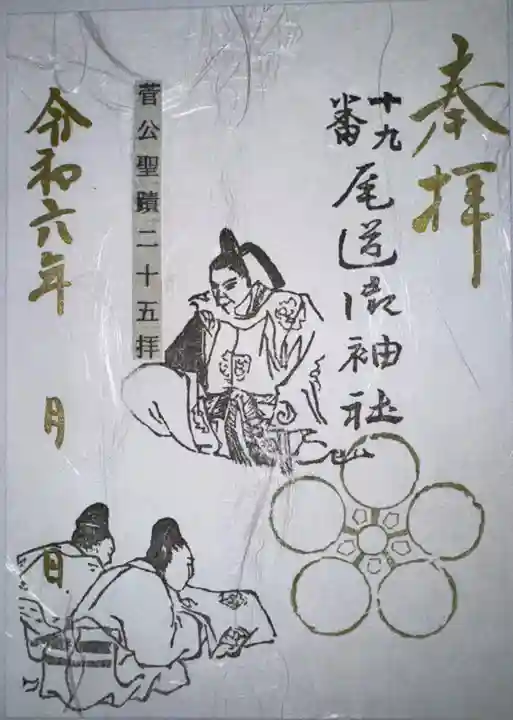 奉拝
十九番
尾道御袖社
菅公聖蹟二十五拝
令和六年 月 日